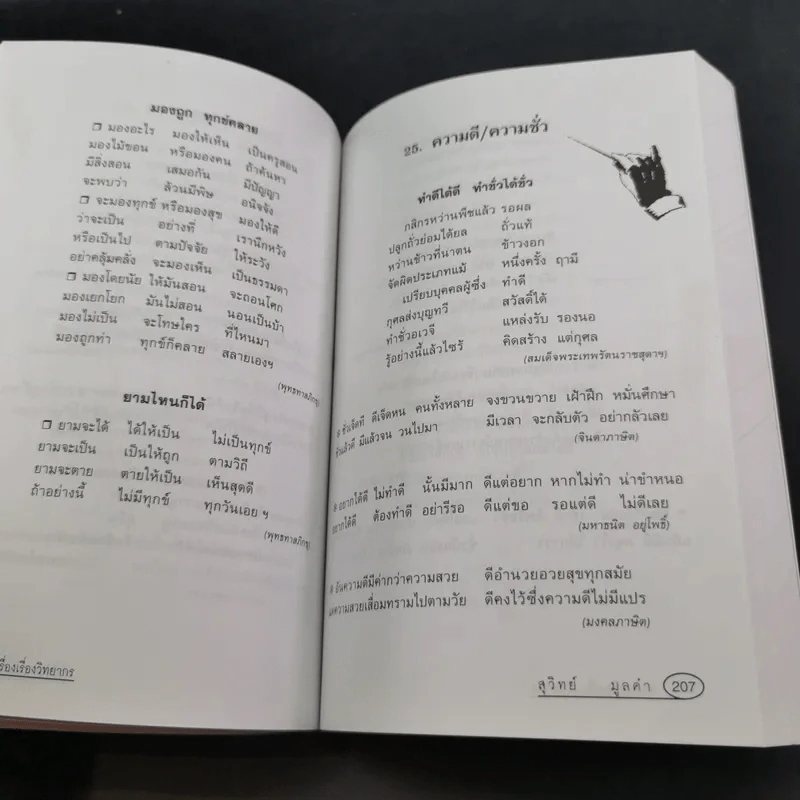 มองถูก ทุกข์คลาย
❒ มองอะไร มองให้เห็น เป็นครูสอน
มองไม้ขอน หรือมองคน ถ้าค้นหา
มีสิ่งสอน เสมอกัน มีปัญญา
จะพบว่า ล้วนมีพิษ อนิจจัง
❒ จะมองทุกข์ หรือมองสุข มองให้ดี
ว่าจะเป็น อย่างที่ เรานึกหวัง
หรือเป็นไป ตามปัจจัย ให้ระวัง
อย่าคลุ้มคลั่ง จะมองเห็น เป็นธรรมดา
❒ มองโดยนัย ให้มันสอน จะถอนโศก
มองเยกโยก มันไม่สอน นอนเป็นบ้า
มองไม่เป็น จะโทษใคร ที่ไหนมา
มองถูกท่า ทุกข์ก็คลาย สลายเองฯ
(พุทธทาสภิกขุ)
ยามไหนก็ได้
❒ ยามจะได้ ได้ให้เป็น ไม่เป็นทุกข์
ยามจะเป็น เป็นให้ถูก ตามวิถี
ยามจะตาย ตายให้เป็น เห็นสุดดี
ถ้าอย่างนี้ ไม่มีทุกข์ ทุกวันเอย ฯ
(พุทธทาสภิกขุ)
รื่องเรื่องวิทยากร
25. ความดี/ความชั่ว
ทำดีได้ดี ทำชั่วได้ชั่ว
กสิกรหว่านพืชแล้ว รอผล
ปลูกถั่วย่อมได้ยล ถั่วแท้
หว่านข้าวที่นาตน ข้าวงอก
จัดผิดประเภทแม้ หนึ่งครั้ง ฤามี
เปรียบบุคคลผู้ซึ่ง ทำดี
กุศลส่งบุญทวี สวัสดิ์ได้
ทำชั่วอเวจี แหล่งรับ รองนอ
รู้อย่างนี้แล้วไซร้ คิดสร้าง แต่กุศล
(สมเด็จพระเทพรัตนราชสุดาฯ)
ชั่วเจ็ดที ดีเจ็ดหน คนทั้งหลาย จงขวนขวาย เฝ้าฝึก หมั่นศึกษา
ชั่วแล้วดี มีแล้วจน วนไปมา มีเวลา จะกลับตัว อย่ากลัวเลย
(จินตาภาษิต)
อยากได้ดี ไม่ทำดี นั้นมีมาก ดีแต่อยาก หากไม่ทำ น่าขำหนอ
อยากได้ดี ต้องทำดี อย่ารีรอ ดีแต่ขอ รอแต่ดี ไม่ดีเลย
(มหาธนิต อยู่โพธิ์)
อันความดีมีค่ากว่าความสวย ดีอำนวยอวยสุขทุกสมัย
ความสวยเสื่อมทรามไปตามวัย ดีคงไว้ซึ่งความดีไม่มีแปร
(มงคลภาษิต)
สุวิทย์ มูลคำ 207